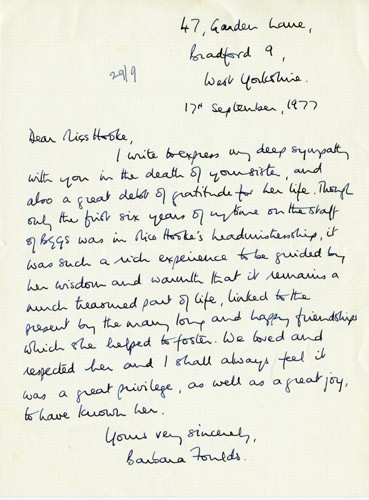 47, Garden Lane,
Bradford 9,
29/9
West Yorkshire.
17th September, 1977
Dear Miss Hooke,
I write to express my deep sympathy
with you in the death of your sister, and
also a great debt of gratitude for her life. Though
only the first six years of my time on the staff
of BGGS was in Miss Hooke's headmistressship, it
was such a rich experience to be guided by
her wisdom and warmth that it remains a
much treasured part of life, linked to the
present by the many long and happy friendships
which she helped to foster. We loved and
respected her and I shall always feel it
was a great privilege, as well as a great joy,
to have known her.
Yours very sincerely,
Barbara Foulds.